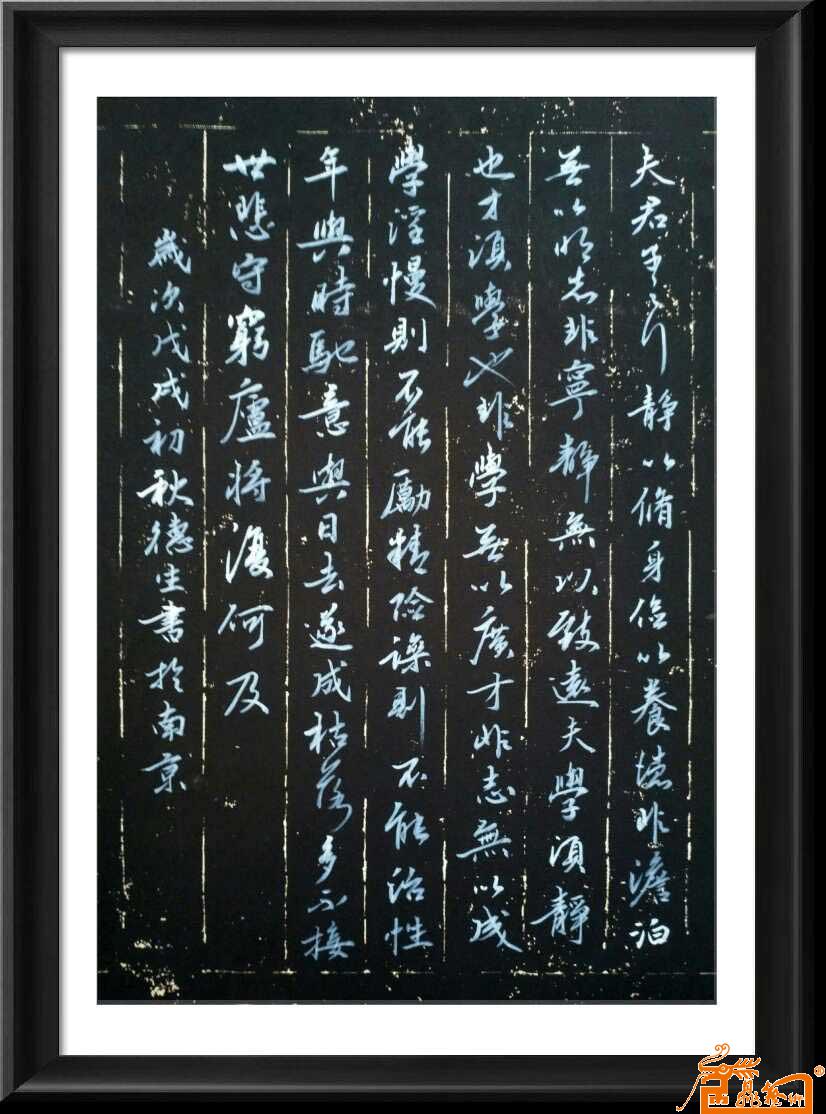 夫君子之行靜以脩身儉以養德非澹泊
無以明志非寧靜無以致遠夫學須靜
也才須學也非學無以廣才非志無以成
學淫慢則不能勵精險躁則不能治性
年與時馳意與日去遂成枯落多不接
世悲守窮廬將復何及
歲次戊戌初秋德生書於南京